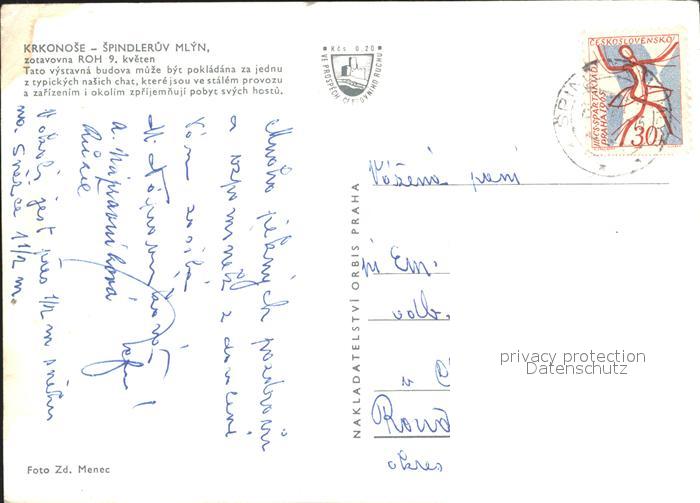 KRKONOŠE – ŠPINDLERŮV MLÝN,
zotavovna ROH 9. květen
Tato výstavná budova může být pokládána za jednu
z typických našich chat, které jsou ve stálém provozu
a zařízením i okolím zpříjemňují pobyt svých hostů.
Kčs 0.20
VE PROSPĚCH CESTOVNÍHO RUCHU
ČESKOSLOVENSKO
III.CS.SPARTAKIÁDA
PRAHA 1965
30
ŠPIN
Mnoho pěkných pozdravů
a vzpomínek z dovolené
Vám zasílá
a
Růže
V okolí jest přes 1/2 m sněhu
na Sněžce 1 1/2 m.
NAKLADATELSTVÍ ORBIS PRAHA
Vážená paní
pí Em.
odb.
v Č
Roud
okres
privacy protection
Datenschutz
Foto Zd. Menec